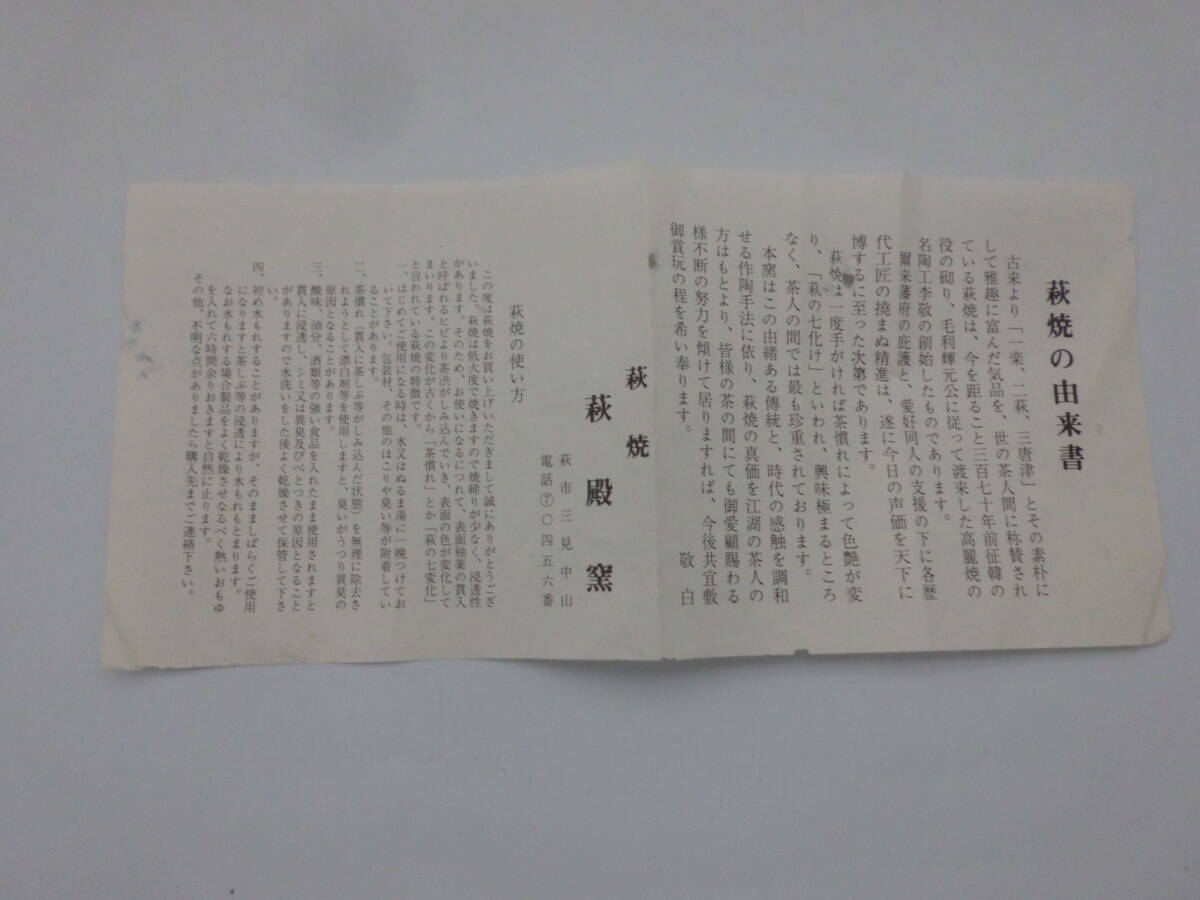 萩焼の由来書
古来より「一楽、二萩、三唐津」とその素朴に
して雅趣に富んだ気品を、世の茶人間に称賛され
ている萩焼は、今を距ること三百七十年前征韓の
役の砌り、毛利輝元公に従って渡来した高麗焼の
名陶工李敬の創始したものであります。
爾来藩府の庇護と、愛好同人の支援の下に各歴
代工匠の撓まぬ精進は、遂に今日の声価を天下に
博するに至った次第であります。
萩焼は一度手がければ茶慣れによって色艶が変
り、「萩の七化け」といわれ、興味極まるところ
なく、茶人の間では最も珍重されております。
本窯はこの由緒ある傳統と、時代の感触を調和
せる作陶手法に依り、萩焼の真価を江湖の茶人の
方はもとより、皆様の茶の間にても御愛顧賜わる
様不断の努力を傾けて居りますれば、今後共宜敷
御賞玩の程を希い奉ります。
敬白
萩焼
萩殿窯
萩市三見中山
電話⑦〇四五六番
萩焼の使い方
この度は萩焼をお買い上げいただきまして誠にありがとうござ
いました。萩焼は低火度で焼きますので焼締りが少なく、浸透性
があります。そのため、お使いになるにつれて、表面釉薬の貫入
と呼ばれるヒビより茶渋がしみ込んでいき、表面の色が変化して
まいります。この変化が古くから「茶慣れ」とか「萩の七変化」
と言われている萩焼の特徴です。
一、はじめてご使用になる時は、水又はぬるま湯に一晩つけてお
いて下さい。包装材、その他のほこりや臭い等が附着してい
ることがあります。
二、茶慣れ（貫入に茶しぶ等がしみ込んだ状態）を無理に除去さ
れようとして漂白剤等を使用しますと、臭いがうつり異臭の
原因となることがあります。
三、酸味、油分、酒類等の強い食品を入れたまま使用されますと
貫入に浸透し、シミ又は異臭及びべとつきの原因となること
がありますので水洗いをした後よく乾燥させて保管して下さ
い。
四、初め水もれすることがありますが、そのまましばらくご使用
になりますと茶しぶ等の浸透により水もれもとまります。
なお水もれする場合製品をよく乾燥させなるべく熱いおもゆ
を入れて六時間余りおきますと自然に止ります。
その他、不明な点がありましたら購入先までご連絡下さい。